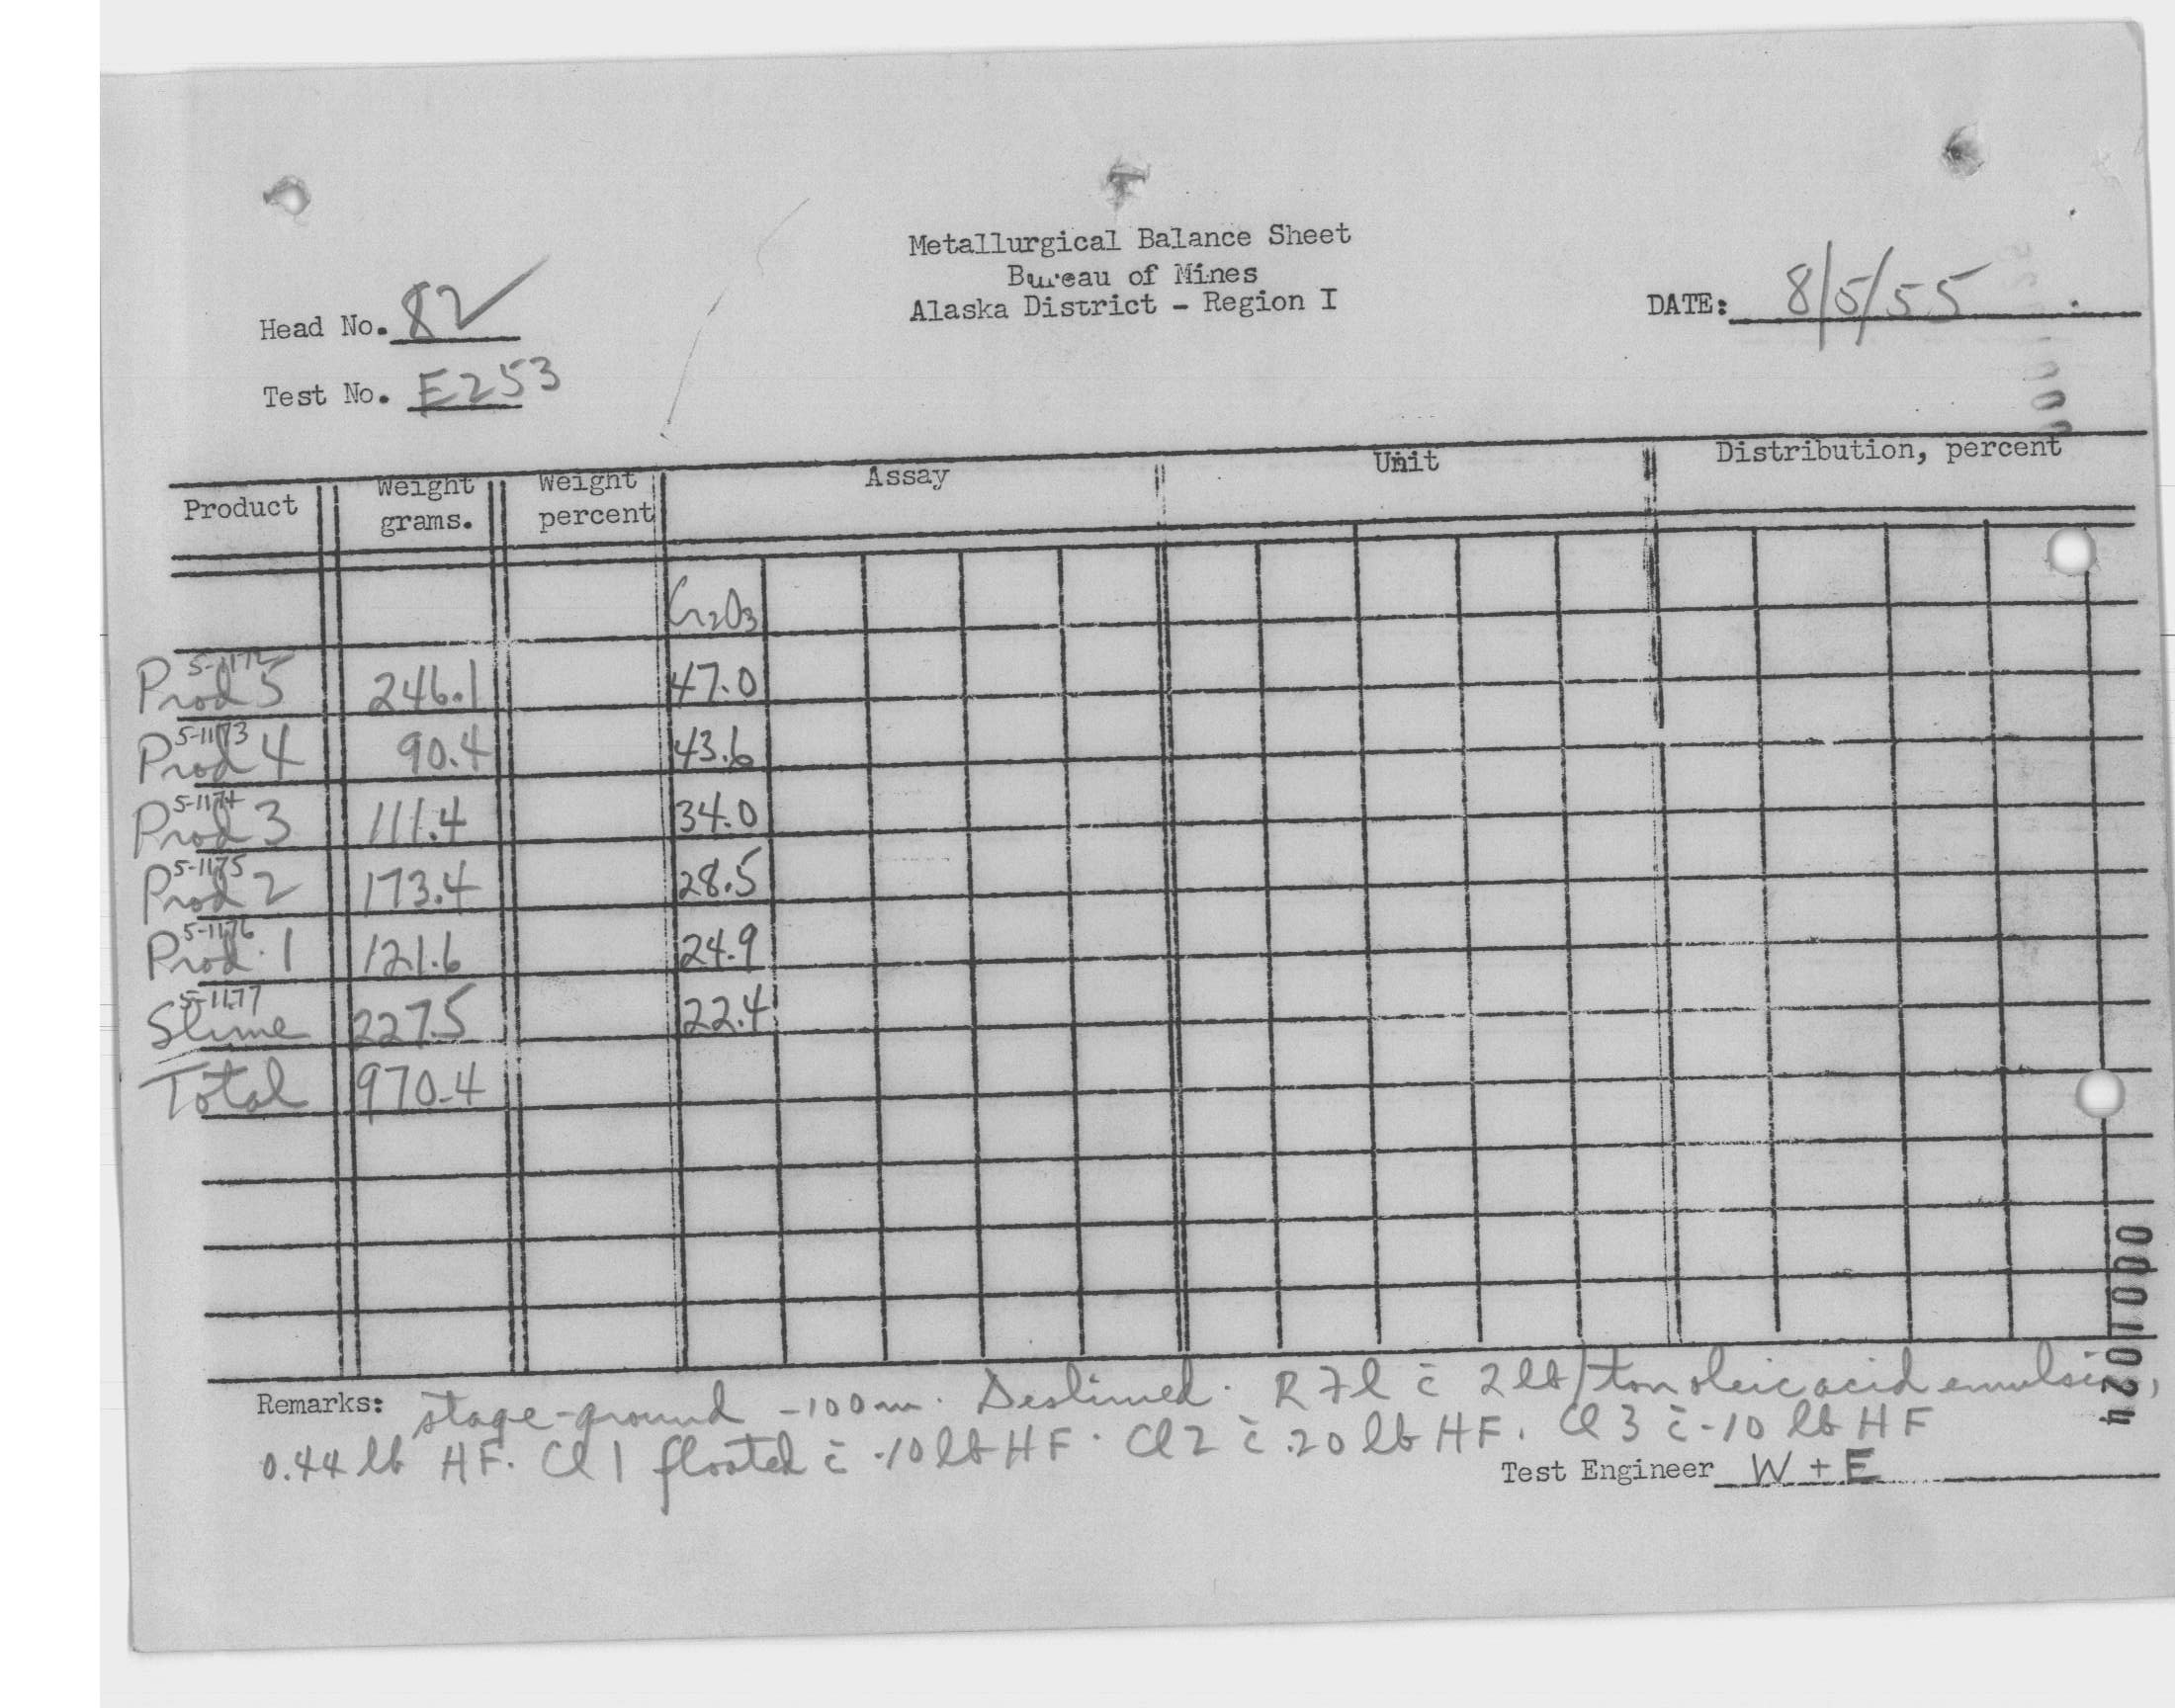 Metallurgical Balance Sheet
Bureau of Mines
Alaska District - Region I
Head No. 82
DATE: 8/5/55
Test No. E253
Product Weight grams. Weight percent Assay Unit Distribution, percent
Cr2O3
5-1172
Prod 5 246.1 47.0
5-1173
Prod 4 90.4 43.6
5-1174
Prod 3 111.4 34.0
5-1175
Prod 2 173.4 28.5
5-1176
Prod. 1 121.6 24.9
5-1177
Slime 227.5 22.4
Total 970.4
Remarks: stage-ground -100m. Deslimed. R Fl c̄ 2 lb/ton oleic acid emulsion,
0.44 lb HF. Cl 1 floated c̄ .10 lb HF. Cl 2 c̄ .20 lb HF. Cl 3 c̄ .10 lb HF
Test Engineer W + E
00010274